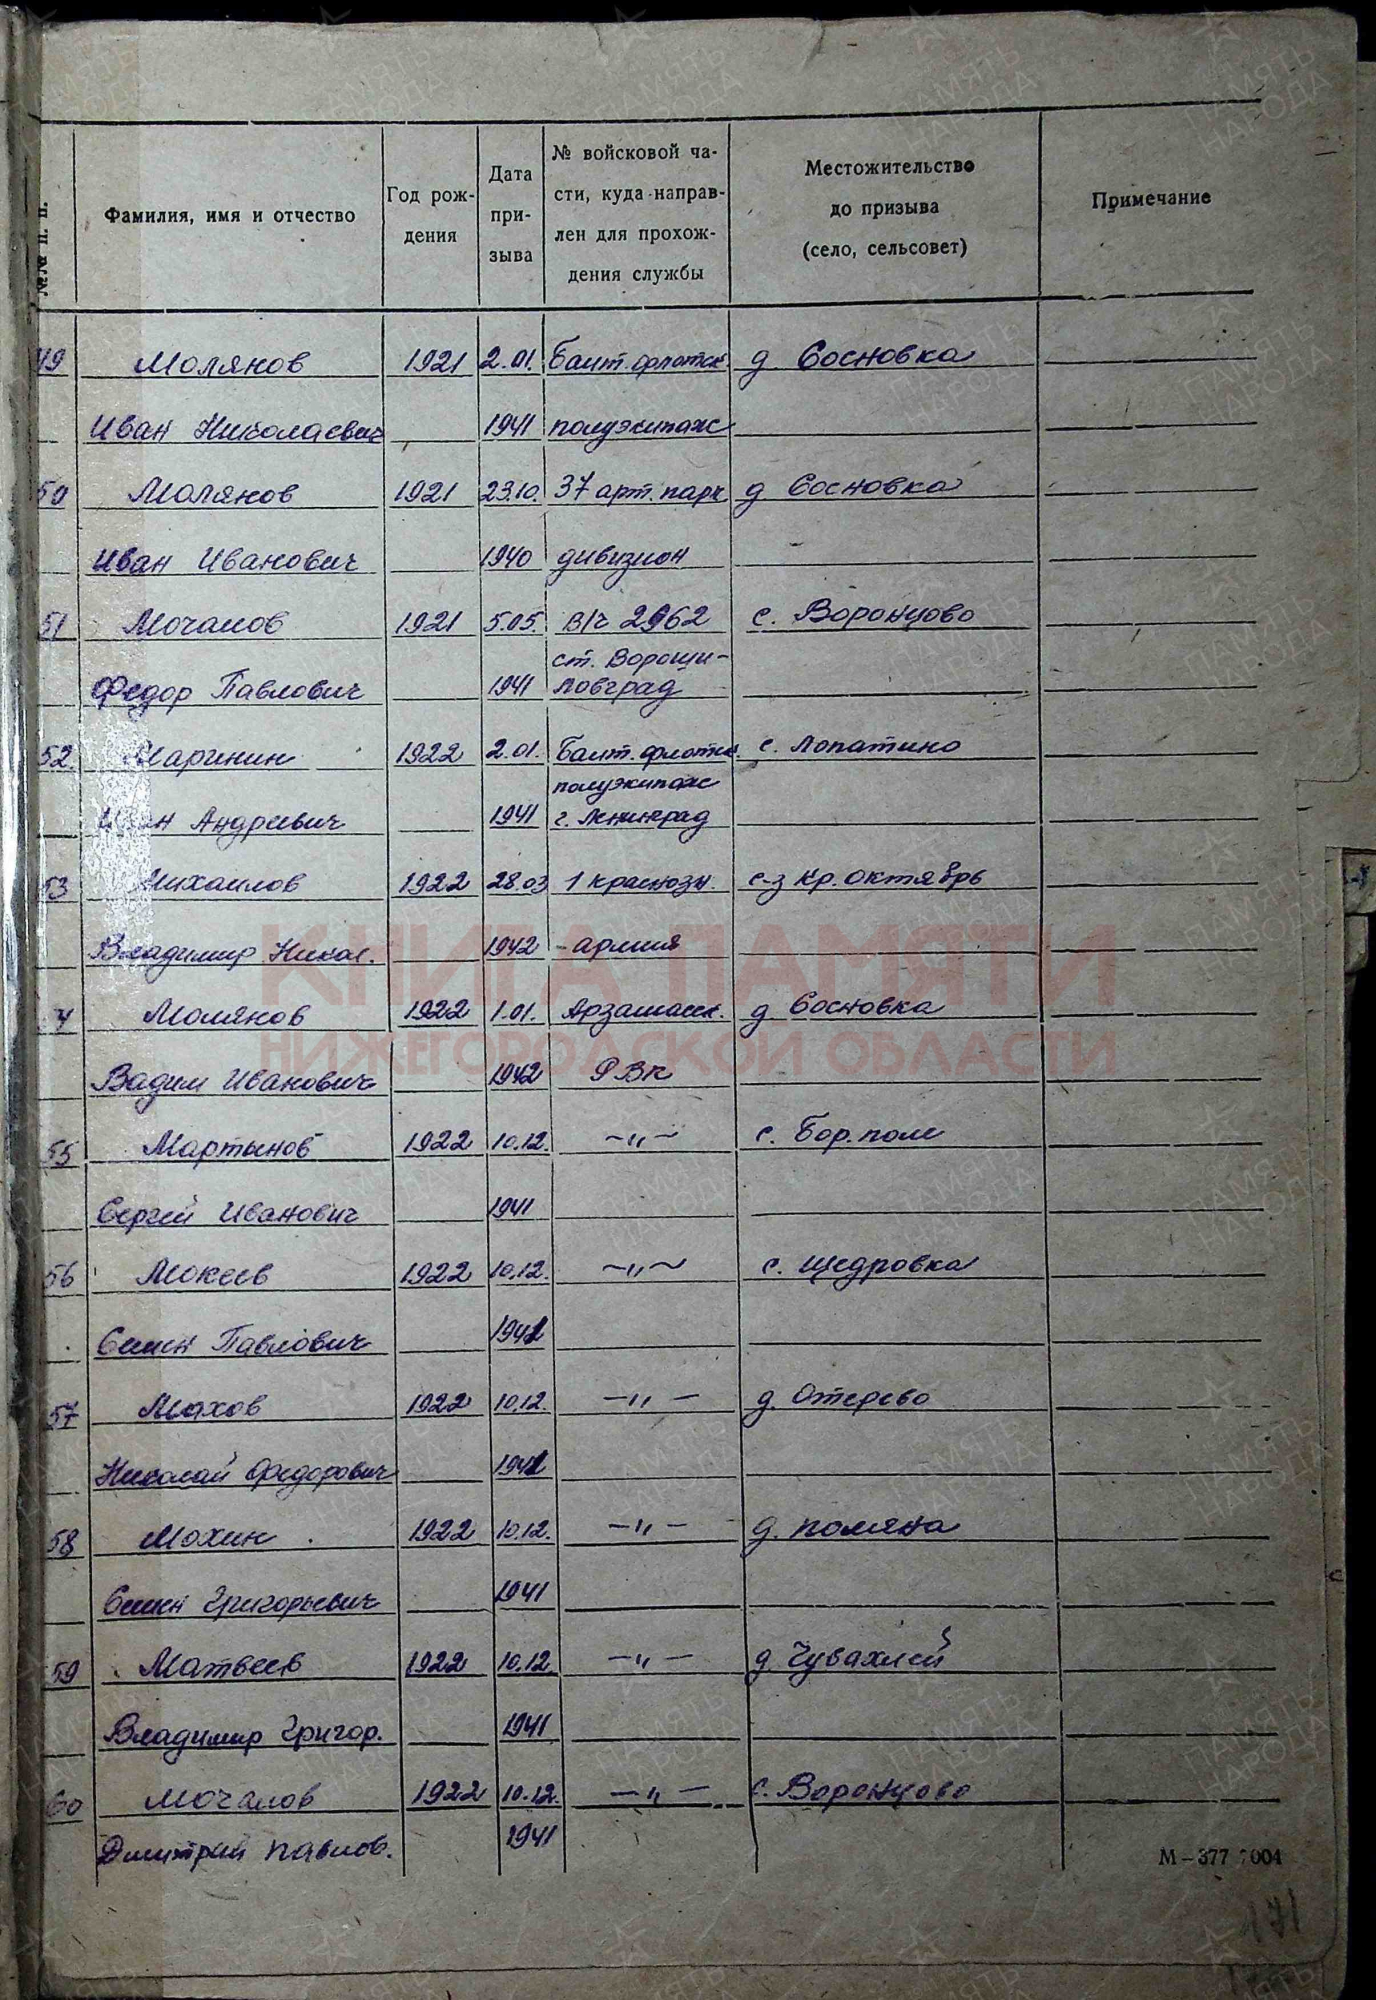 №№ п. п.
Фамилия, имя и отчество
Год рож-
дения
Дата
при-
зыва
№ войсковой ча-
сти, куда направ-
лен для прохож-
дения службы
Местожительство
до призыва
(село, сельсовет)
Примечание
49 Молянов 1921 2.01. Балт. флотск д Сосновка
Иван Николаевич 1941 полуэкипаж
50 Молянов 1921 23.10. 37 арт. парк д Сосновка
Иван Иванович 1940 дивизион
51 Мочалов 1921 5.05. в/ч 2962 с. Воронцово
ст. Вороши-
Федор Павлович 1941 ловград
52. Маринин 1922 2.01. Балт. флотск. с. Лопатино
полуэкипаж
Иван Андреевич 1941 г. Ленинград
53 Михайлов 1922 28.03 1 краснозн. с-з Кр. Октябрь
Владимир Никол. 1942 армия
54 Молянов 1922 1.01. Арзамасск. д Сосновка
Вадим Иванович 1942 РВк
55 Мартынов 1922 10.12. —„— с. Бор. поле
Сергей Иванович 1941
56 Мокеев 1922 10.12. —„— с. Щедровка
Семен Павлович 1941
57 Махов 1922 10.12. —„— д. Отерево
Николай Федорович 1941
58 Мохин 1922 10.12. —„— д. Поляна
Семен Григорьевич 1941
59 Матвеев 1922 10.12. —„— д. Чувахлей
Владимир Григор. 1941
60 Мочалов 1922 10.12. —„— с. Воронцово
Дмитрий Павлов. 1941
М—377 7004
171
КНИГА ПАМЯТИ
НИЖЕГОРОДСКОЙ ОБЛАСТИ
ПАМЯТЬ НАРОДА